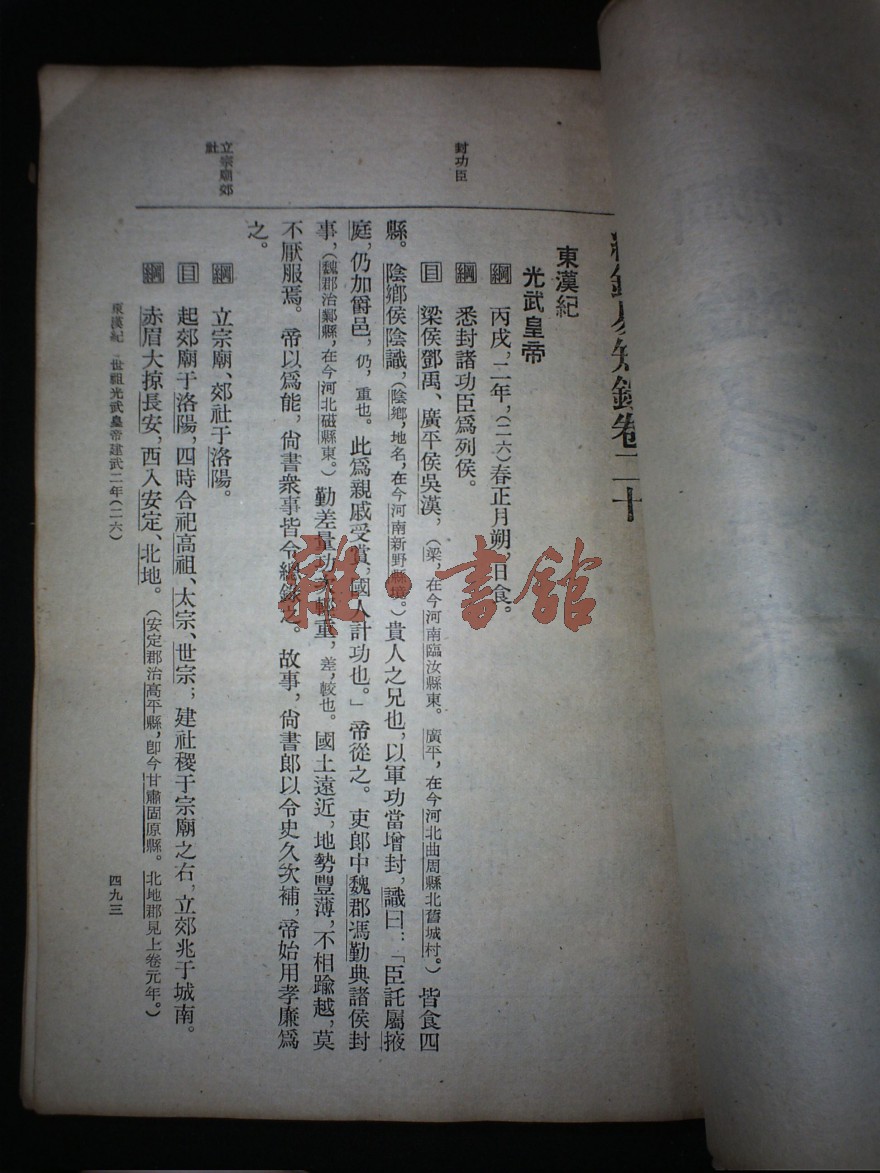 綱鑑易知錄卷二十
東漢紀
光武皇帝
綱 丙戌,二年,(二六)春正月朔,日食。
綱 悉封諸功臣爲列侯。
目 梁侯鄧禹、廣平侯吳漢,(梁,在今河南臨汝縣東。廣平,在今河北曲周縣北舊城村。)皆食四
縣。陰鄉侯陰識,(陰鄉,地名,在今河南新野縣境。)貴人之兄也,以軍功當增封,識曰:「臣託屬掖
庭,仍加爵邑,仍,重也。此爲親戚受賞,國人計功也。」帝從之。吏郎中魏郡馮勤典諸侯封
事,(魏郡治鄴縣,在今河北磁縣東。)勤差量功次輕重,差,較也。國土遠近,地勢豐薄,不相踰越,莫
不厭服焉。帝以爲能,尙書衆事皆令總錄之。故事,尙書郎以令史久次補,帝始用孝廉爲
之。
綱 立宗廟、郊社于洛陽。
目 起郊廟于洛陽,四時合祀高祖、太宗、世宗;建社稷于宗廟之右,立郊兆于城南。
綱 赤眉大掠長安,西入安定、北地。(安定郡治高平縣,卽今甘肅固原縣。北地郡見上卷元年。)
封功臣
立宗廟郊
社
東漢紀 世祖光武皇帝建武二年(二六)
四九三
雜·書館